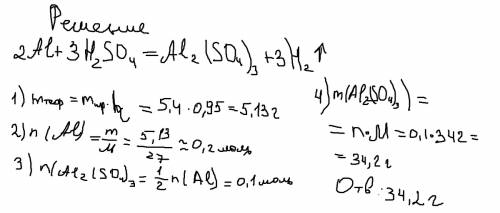 Решение
2Al+3H₂SO₄=Al₂(SO₄)₃+3H₂↑
1) mтеор=mпр·η=5,4·0,95=5,13г
2) n(Al)=m/M=5,13/27≈0,2моль
3) n(Al₂(SO₄)₃=1/2n(Al)=0,1моль
4) m(Al₂(SO₄)₃)=
=n·M=0,1·342=
=34,2г
Отв:34,2г